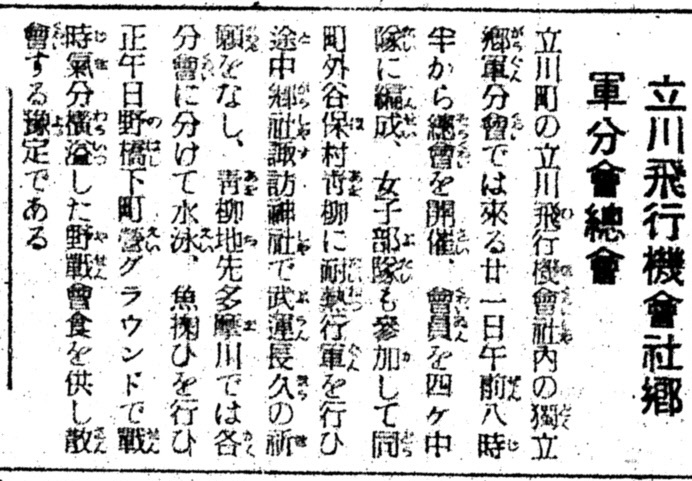 立川飛行機會社鄕
軍分會總會
立川町の立川飛行機會社内の獨立
鄕軍分會では來る廿一日午前八時
半から總會を開催、會員を四ケ中
隊に編成、女子部隊も參加して同
町外谷保村靑柳に耐熱行軍を行ひ
途中鄕社諏訪神社で武運長久の祈
願をなし、靑柳地先多摩川では各
分會に分けて水泳、魚掬ひを行ひ
正午日野橋下町營グラウンドで戰
時氣分橫溢した野戰會食を供し散
會する豫定である